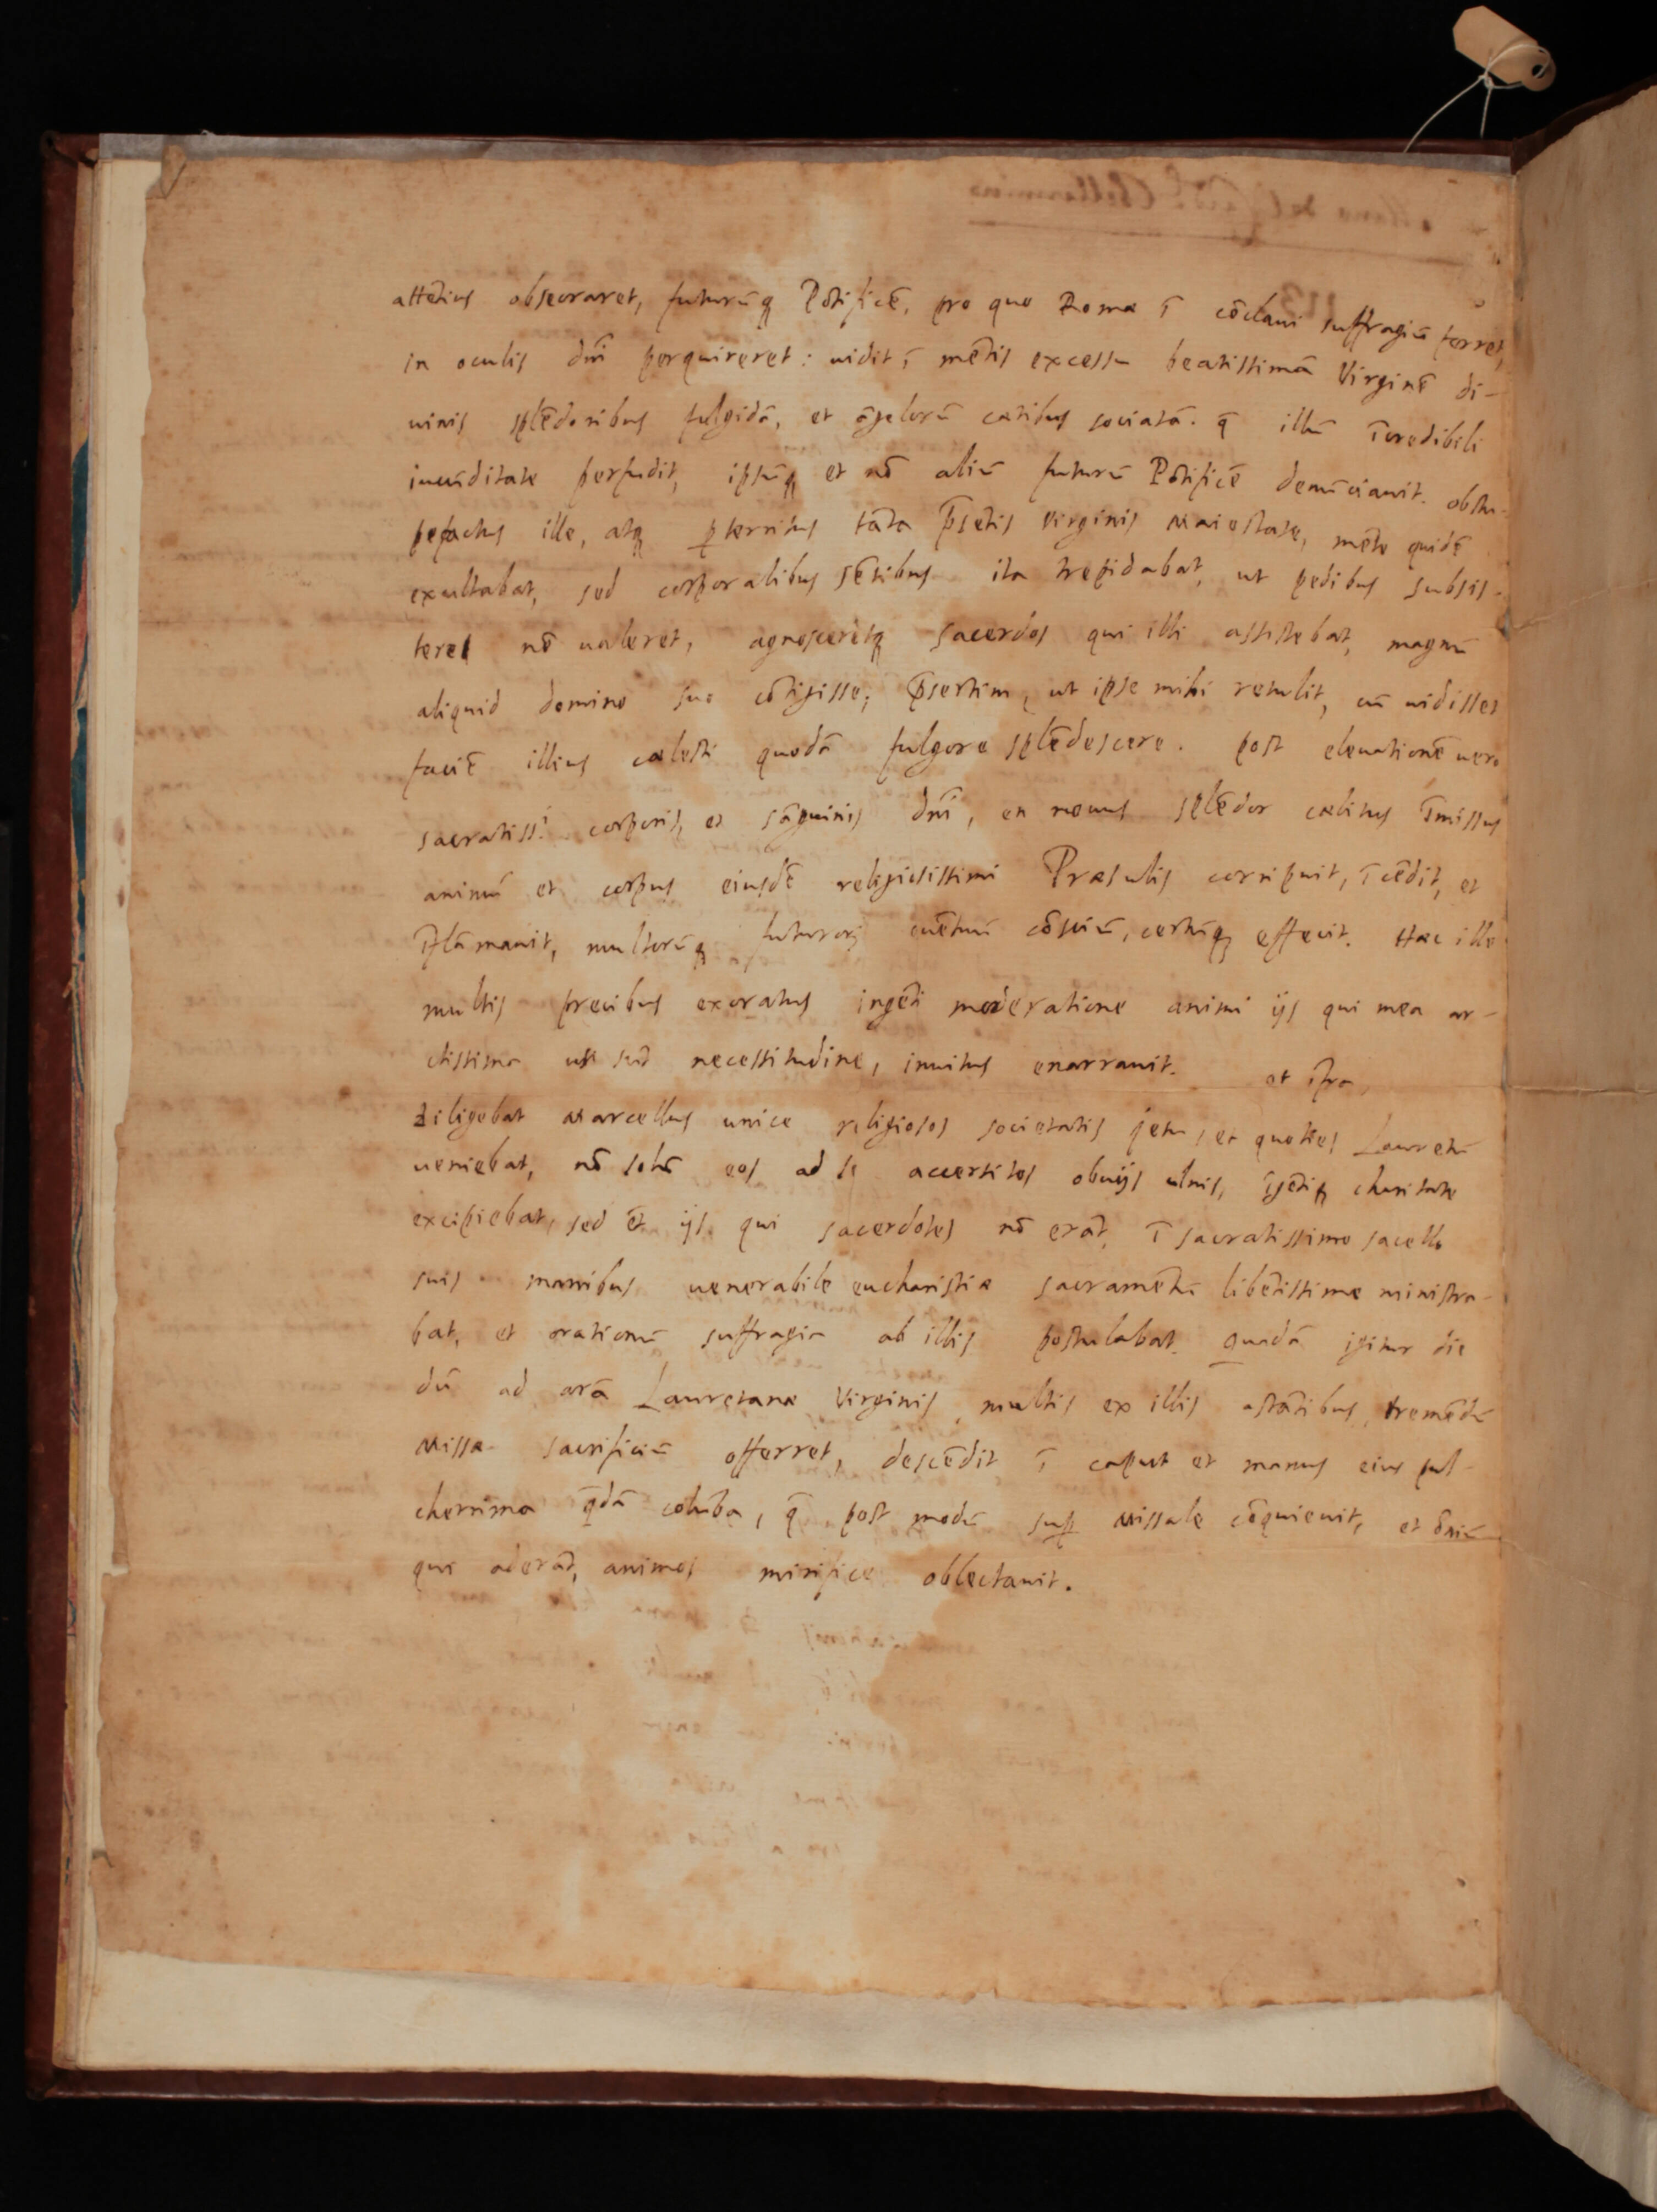 attētius obsecraret, futurūq₃ Põtificē, pro quo Romæ ī cōclaui suffragiū ferret,
in oculis dn̄i perquireret: uidit ī mētis excessu beatissimā Virginē di-
uinis splēdoribus fulgidā, et āgelorū cætibus sociatā. q̄ illū īcredibili
iucūditate perfudit, ipsūq₃ et nō aliū futurū Põtificē denūciauit. obstu-
pefactus ille, atq₃ ꝑterritus tāta p̄sētis Virginis Maiestate, mēte quidē
exultabat, sed corporalibus sēsibus ita trepidabat, ut pedibus subsis-
tere nō ualeret, agnosceretq₃ sacerdos qui illi assistebat, magnū
aliquid domino suo cōtigisse; p̄sertim, ut ipse mihi retulit, cū uidisset
faciē illius cælesti quodā fulgore splēdescere. post eleuationē uero
sacratiss.i corporis, et sāguinis dn̄i, en nouus splēdor cælitus īmissus
animū et corpus eiusdē religiosissimi Præsulis corripuit, īcēdit, et
īflāmauit, multorūq₃ futuror₃ euētuū cōsciū, certūq₃ effecit. Hæc ille
multis precibus exoratus ingēti moderatione animi ijs qui mea ar-
ctissima usi sūt necessitudine, inuitus enarrauit. et īfra,
Diligebat Marcellus unice religiosos societatis jesu, et quoties Lauretū
ueniebat, nō solū eos ad se accersitos obuijs ulnis, īgētiq₃ charitate
excipiebat, sed et ijs qui sacerdotes nō erāt, ī sacratissimo sacello
suis manibus uenerabile eucharistiæ sacramētū libētissime ministra-
bat, et orationū suffragia ab illis postulabat. quadā igitur die
dū ad arā Lauretanæ Virginis, multis ex illis astātibus, tremēdū
Missæ sacrificiū offerret, descēdit ī caput et manus eius pul-
cherrima q̄dā colūba, q̄ post modū suꝑ Missale cōquieuit, et ōniū
qui aderāt, animos mirifice oblectauit.